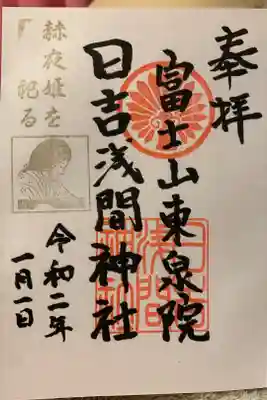 奉拝
富士山東泉院
日吉浅間神社
令和二年
一月一日
赫夜姫を
祀る